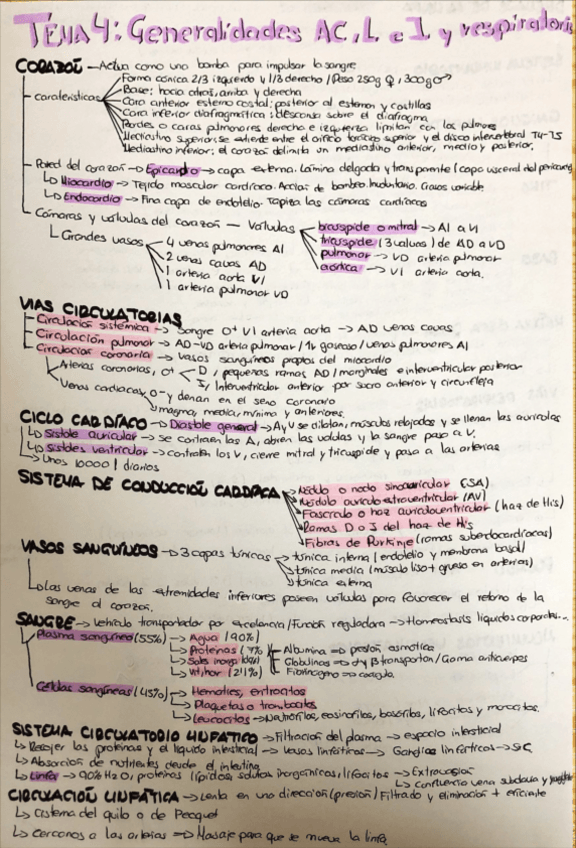 TEMA 4: Generalidades AC, L e I y respiratorio
CORAZÓN → Actúa como una bomba para impulsar la sangre.
caraterísticas
Forma cónica 2/3 izquierdo y 1/3 derecho / Peso 250g ♀, 300g ♂
Base: hacia atrás, arriba y derecha
Cara anterior esterno costal: posterior al esternon y costillas
Cara inferior diafragmática: descansa sobre el diafragma
Bordes o caras pulmonares derecho e izquierda limitan con los pulmones
Mediastino superior: se extiende entre el orificio torácico superior y el disco intervertebral T4-T5
Mediastino inferior: el corazón delimita un mediastino anterior, medio y posterior.
Pared del corazón → Epicardio → capa externa. Lámina delgada y transparente (capa visceral del pericardio
↳ Miocardio → Tejido muscular cardíaco. Acción de bombeo. Involuntario. Grosor variable
↳ Endocardio → Fina capa de endotelio. Tapiza las cámaras cardíacas
Cámaras y válvulas del corazón — Válvulas
bicuspide o mitral → AI a VI
tricuspide (3 valvas) de AD a VD
pulmonar → VD arteria pulmonar
aórtica → VI arteria aorta.
↳ Grandes vasos
4 venas pulmonares AI
2 venas cavas AD
1 arteria aorta VI
1 arteria pulmonar VD
VIAS CIRCULATORIAS
Circulación sistémica → Sangre O+ VI arteria aorta → AD venas cavas
Circulación pulmonar → AD-VD arteria pulmonar / gaseoso / venas pulmonares AI
Circulación coronaria → Vasos sanguíneos propios del miocardio
Arterias coronarias, O+
D, pequeños ramos AD / marginales e interventricular posterior
I, Interventricular anterior por surco anterior y circunfleja
Venas cardiacas, O- y drenan en el seno coronario
magma, media, mínimo y anteriores.
CICLO CARDÍACO → Diastole general → A y V se dilatan, músculos relajados y se llenan las aurículas
↳ Sístole auricular → se contraen las A, abren las válvulas y la sangre pasa a V.
↳ Sístoles ventricular → contraen los V, cierre mitral y tricuspide y pasa a las arterias
↳ Unos 10000 l diarios
SISTEMA DE CONDUCCIÓN CARDÍACA
Módulo o nodo sinoauricular (SA)
Módulo auriculoventricular (AV)
Fascículo o haz auriculoventricular (haz de His)
Ramas D o I del haz de His
Fibras de Purkinje (ramas subendocardíacas)
VASOS SANGUÍNEOS → 3 capas túnicas
túnica interna (endotelio y membrana basal)
túnica media (músculo liso + grueso en arterias)
túnica externa
↳ Las venas de las extremidades inferiores poseen válvulas para favorecer el retorno de la
sangre al corazón.
SANGRE → Vehículo transportador por excelencia / Función reguladora → Homeostasis líquidos corporales...
Plasma sanguíneo (55%)
Agua (90%)
Proteínas (7%)
Albumina → presión osmotica
Globulinas → α y β transportan / Gama anticuerpos
Fibrinógeno → coagula.
Sales inorg
Vit, hor (2'1%)
Células sanguíneas (45%)
Hematíes, eritrocitos
Plaquetas o trombocitos
Leucocitos → Neutrófilos, eosinofilos, basófilos, linfocitos y monocitos.
SISTEMA CIRCULATORIO LINFÁTICO → Filtración del plasma → espacio intersticial
↳ Recojer las proteínas y el líquido intersticial → Vasos linfáticos → Ganglios linfáticos → SC
↳ Absorción de nutrientes desde el intestino
↳ Linfa → 90% H2O, proteínas, lípidos, solutos inorgánicos, linfocitos → Extravasción
↳ Confluencia vena subclavia y yugular
CIRCULACIÓN LINFÁTICA → Lenta en una dirección (presión) / Filtrado y eliminación + eficiente
↳ Cisterna del quilo o de Pecquet
↳ Cercanos a las arterias → Masaje para que se mueva la linfa.